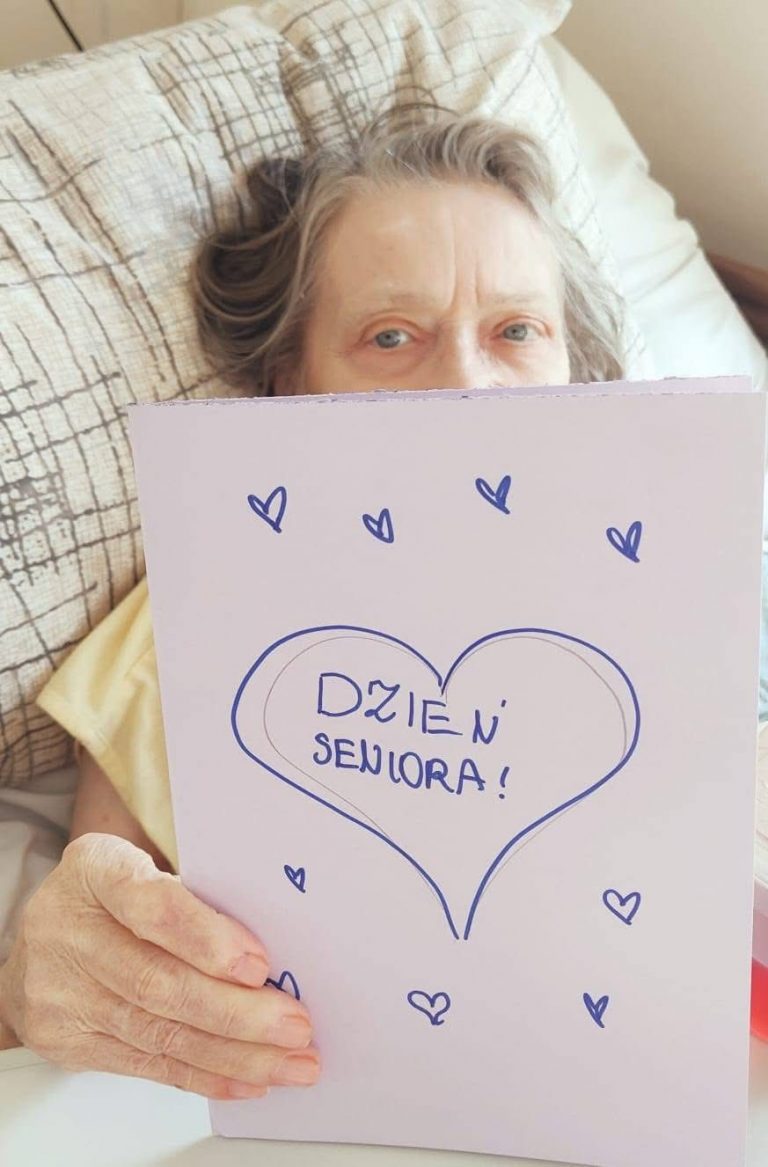 DZIEŃ
SENIORA!